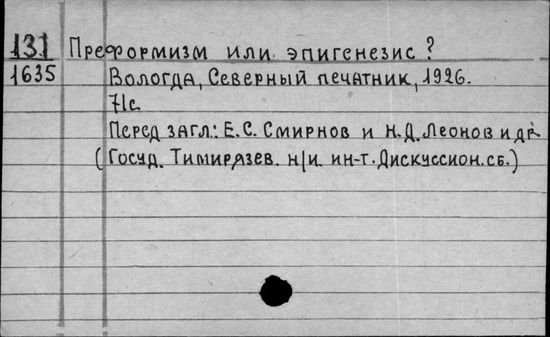 131 Преформизм или эпигенезис?
1635 Вологда, Северный печатник, 1926.
71с.
Перед загл.: Е.С. Смирнов и Н.Д. Леонов и др.
(Госуд. Тимирязев. н/и. ин-т. Дискуссион. сб.)